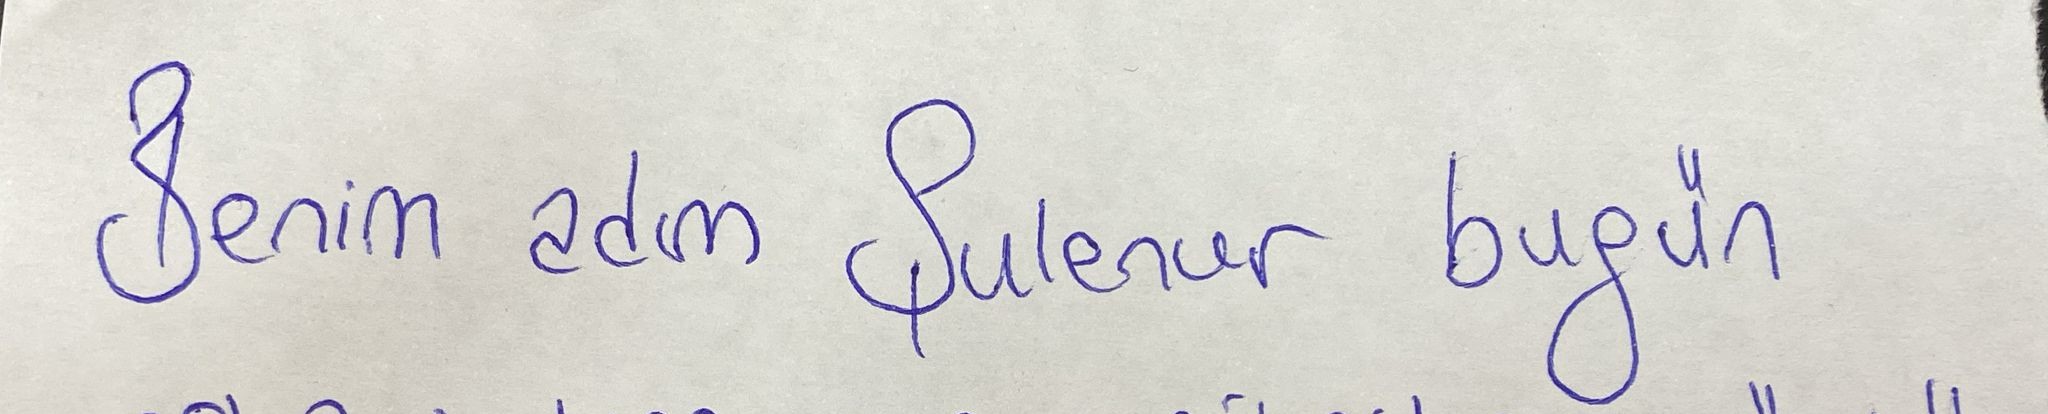 Benim adım Şulenur bugün